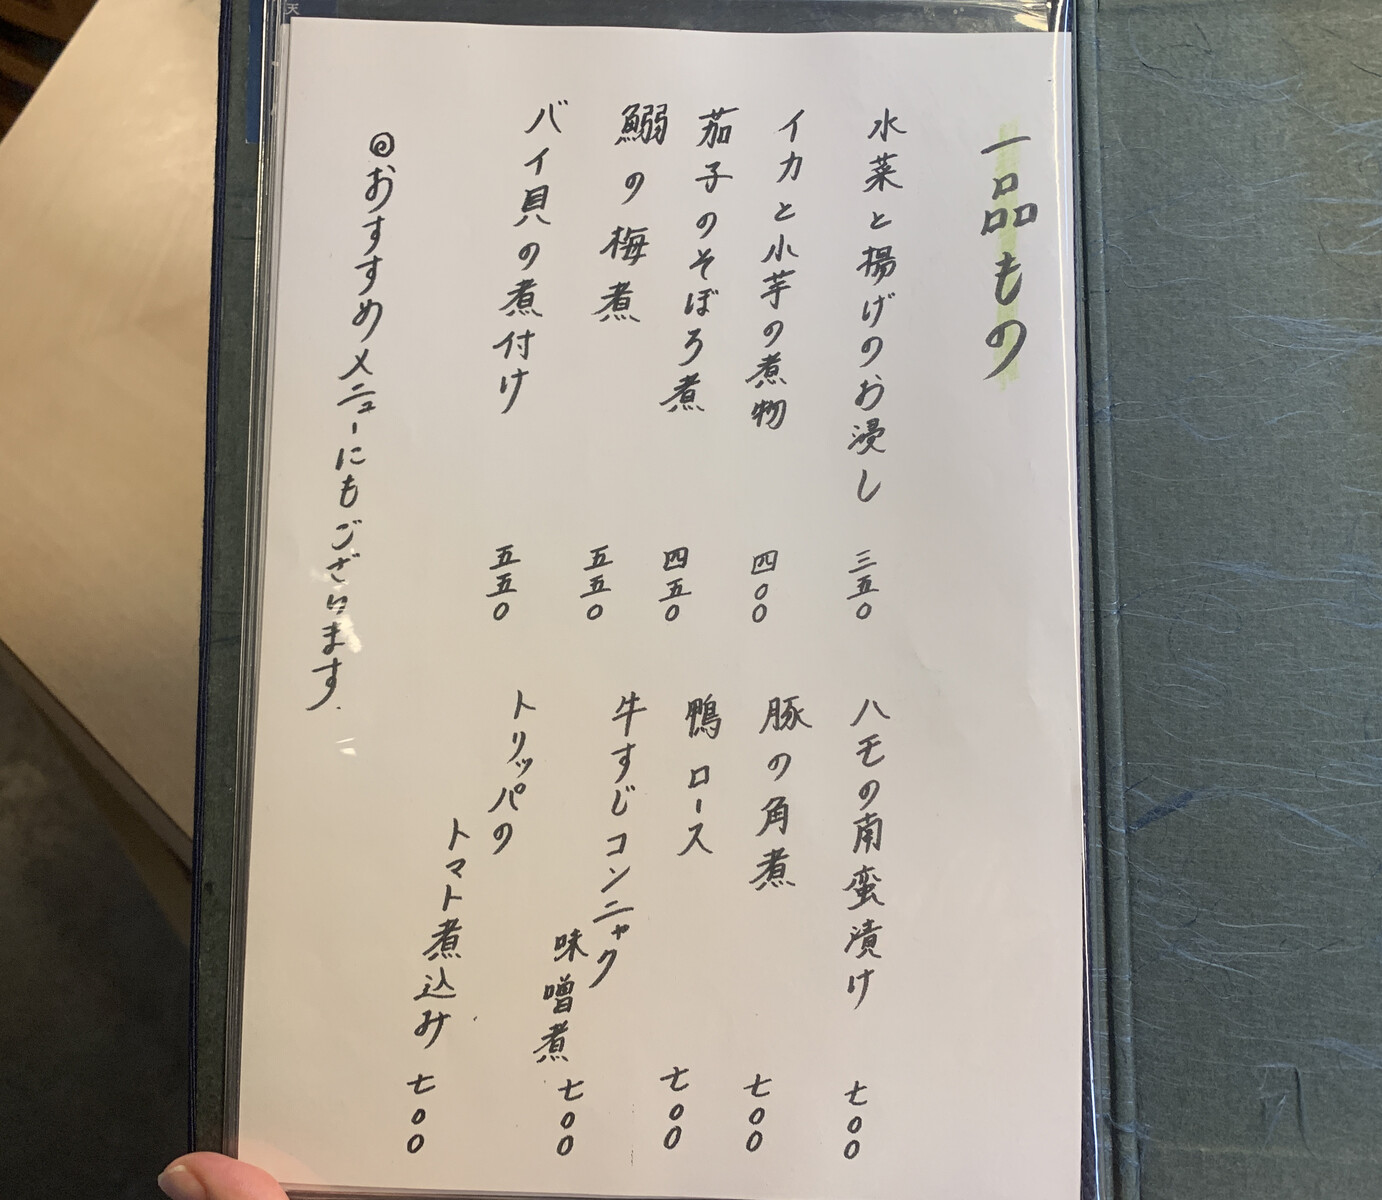 一品もの
水菜と揚げのお浸し 三五〇
イカと小芋の煮物 四〇〇
茄子のそぼろ煮 四五〇
鰯の梅煮 五五〇
バイ貝の煮付け 五五〇
ハモの南蛮漬け 七〇〇
豚の角煮 七〇〇
鴨ロース 七〇〇
牛すじコンニャク
味噌煮 七〇〇
トリッパの
トマト煮込み 七〇〇
◎おすすめメニューにもござります.
天